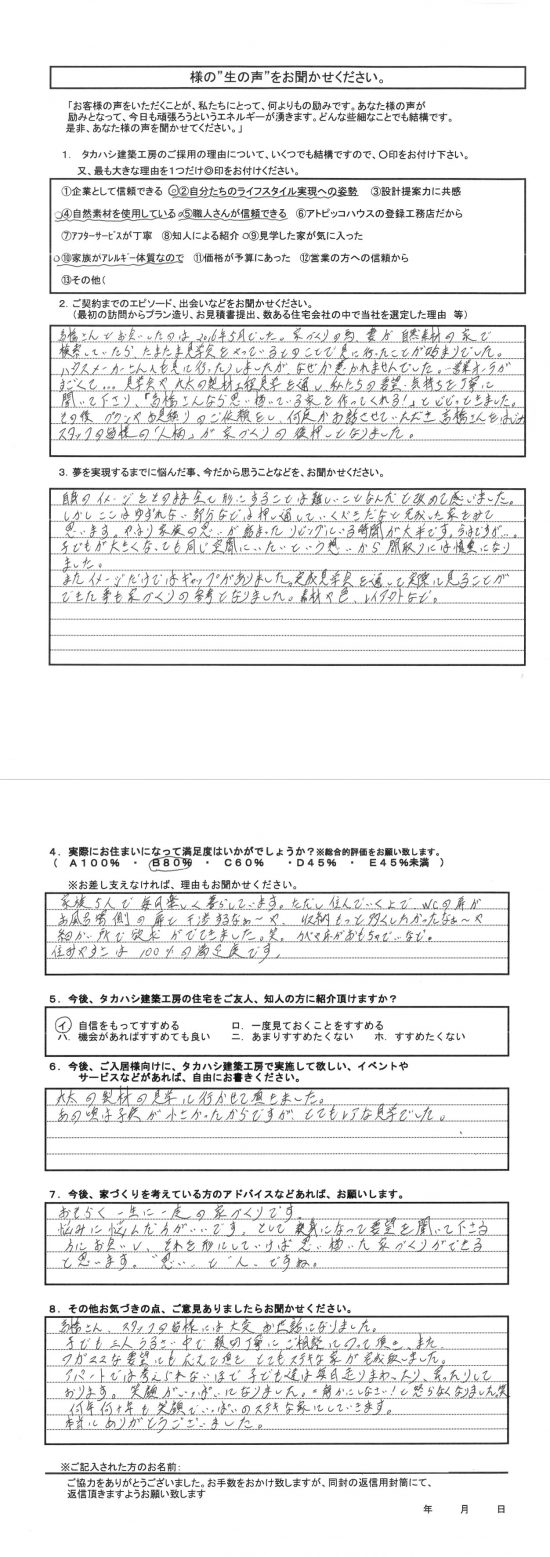 様の”生の声”をお聞かせください。
「お客様の声をいただくことが、私たちにとって、何よりもの励みです。あなた様の声が
励みとなって、今日も頑張ろうというエネルギーが湧きます。どんな些細なことでも結構です。
是非、あなた様の声を聞かせてください。」
1. タカハシ建築工房のご採用の理由について、いくつでも結構ですので、〇印をお付け下さい。
又、最も大きな理由を1つだけ◎印をお付けください。
①企業として信頼できる ◎②自分たちのライフスタイル実現への姿勢 ③設計提案力に共感
○④自然素材を使用している ○⑤職人さんが信頼できる ⑥アトピッコハウスの登録工務店だから
⑦アフターサービスが丁寧 ⑧知人による紹介 ○⑨見学した家が気に入った
○⑩家族がアレルギー体質なので ⑪価格が予算にあった ⑫営業の方への信頼から
⑬その他(
2. ご契約までのエピソード、出会いなどをお聞かせください。
(最初の訪問からプラン造り、お見積書提出、数ある住宅会社の中で当社を選定した理由 等)
高橋さんとお会いしたのは2016年5月でした。家づくりの為、妻が自然素材の家で
検索していたら、たまたま見学会をやっているとのことで見に行ったことが始まりでした。
ハウスメーカーさんへも見に行ったりしましたが、なぜか惹かれませんでした。営業トークが
すごくて… 見学会や丸太の製材工程見学を通し私たちの要望、気持ちを丁寧に
聞いて下さり、「高橋さんなら思い描いている家を作ってくれる!」とビビッときました。
その後 プランやお見積りのご依頼をし、何度かお話させていただき 高橋さんをはじめ
スタッフの皆様の「人柄」が家づくりの後押しとなりました。
3. 夢を実現するまでに悩んだ事、今だから思うことなどを、お聞かせください。
自身のイメージをそのまま全て形にすることは難しいことなんだと改めて感じました。
しかしここはゆずれない部分などは押し通していくべきだなと完成した家をみて
思います。やはり家族の思いが詰まったリビングにいる時間が大半です。今はですが…。
子どもが大きくなっても同じ空間にいたいという想いから間取りには慎重になり
ました。
またイメージだけではギャップがありました。完成見学会を通して実際に見ることが
できた事も家づくりの参考となりました。素材や色、レイアウトなど。
4. 実際にお住まいになって満足度はいかがでしょうか?※総合的評価をお願い致します。
( A100% ・ B80% ・ C60% ・D45% ・ E45%未満 )
※お差し支えなければ、理由もお聞かせください。
家族5人で毎日楽しく暮らしています。ただし住んでいく上で、WCの扉が
お風呂場側の扉と干渉するなぁ〜や、収納もっと多くしたかったなぁ〜や
細かい所で欲求がでてきました。笑。
住みやすさは100%の満足度です。
5. 今後、タカハシ建築工房の住宅をご友人、知人の方に紹介頂けますか?
イ. 自信をもってすすめる ロ. 一度見ておくことをすすめる
ハ. 機会があればすすめても良い ニ. あまりすすめたくない ホ. すすめたくない
6. 今後、ご入居様向けに、タカハシ建築工房で実施して欲しい、イベントや
サービスなどがあれば、自由にお書きください。
丸太の製材の見学に行かせて頂きました。
あの頃は子供が小さかったからですが、とても好な見学でした。
7. 今後、家づくりを考えている方のアドバイスなどあれば、お願いします。
おそらく一生に一度の家づくりです。
悩みに悩んだ方がいいです。そして親身になって要望を聞いて下さる
方にお会いし、それを形にしていけば思い描いた家づくりができる
と思います。"思い"と"人"ですね。
8. その他お気づきの点、ご意見ありましたらお聞かせください。
高橋さん、スタッフの皆様には大変お世話になりました。
子ども三人うるさい中で親切丁寧にご相談にのって頂き、また
ワガママな要望にも応えて頂き、とてもステキな家が完成致しました。
アパートでは考えられないほど子ども達は毎日走りまわったり、笑ったりして
おります。笑顔がいっぱいになりました。"静かにしなさい!"と怒らなくなりました。笑
何年何十年も笑顔でいっぱいのステキな家にしていきます。
本当にありがとうございました。
※ご記入された方のお名前:
ご協力をありがとうございました。お手数をおかけ致しますが、同封の返信用封筒にて、
返信頂きますようお願い致します
年 月 日